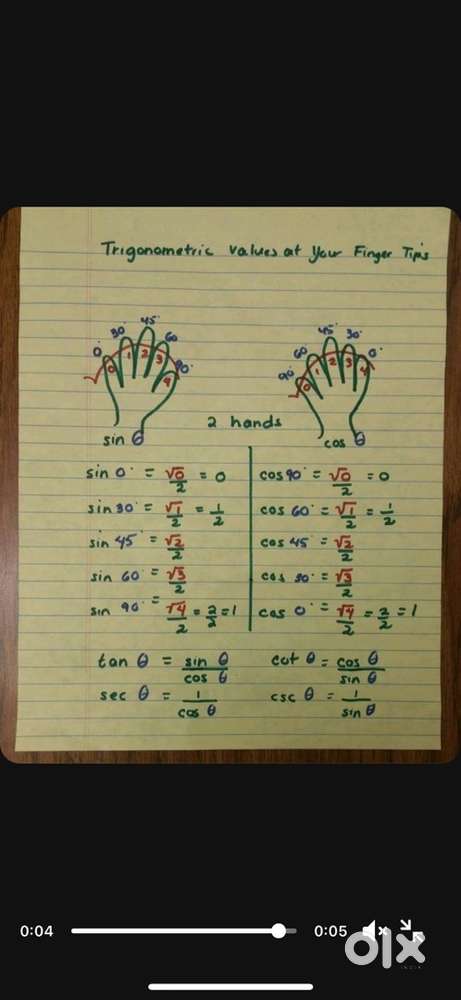 Trigonometric values at Your Finger Tips
0° 30° 45° 60 90°
0 1 2 3 4
sin θ
90° 60 45° 30° 0°
0 1 2 3 4
cos θ
2 hands
sin 0° = √0/2 = 0
sin 30° = √1/2 = 1/2
sin 45° = √2/2
sin 60° = √3/2
sin 90° = √4/2 = 2/2 = 1
cos 90° = √0/2 = 0
cos 60° = √1/2 = 1/2
cos 45° = √2/2
cos 30° = √3/2
cos 0° = √4/2 = 2/2 = 1
tan θ = sin θ/cos θ
cot θ = cos θ/sin θ
sec θ = 1/cos θ
csc θ = 1/sin θ
0:04
0:05
olx
INDIA